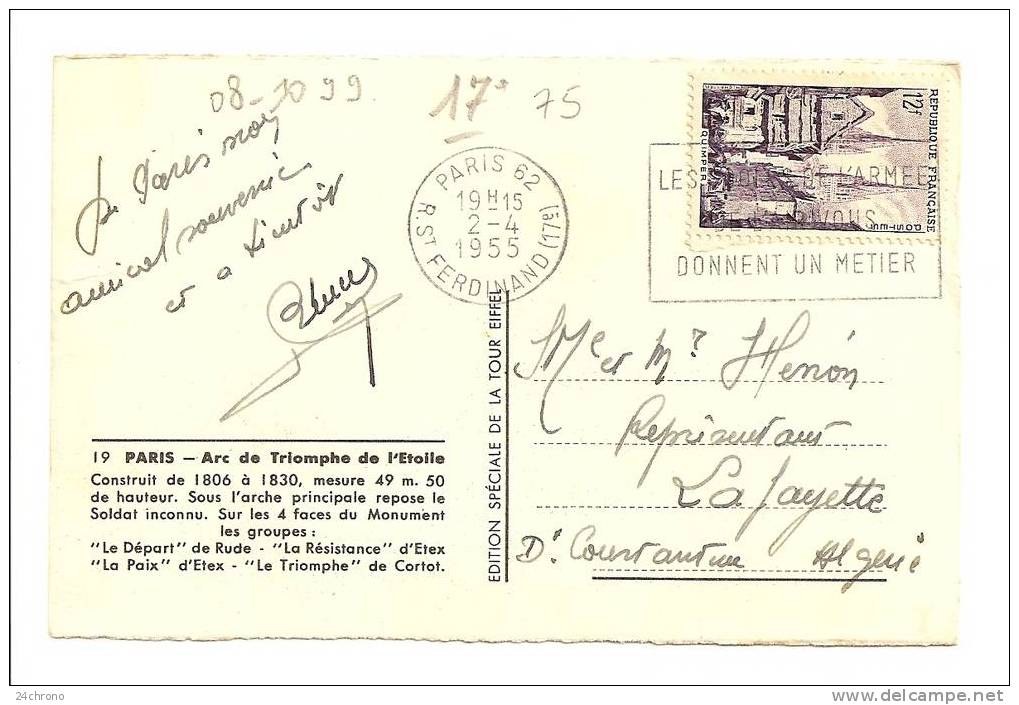 08-10 99
17e
75
De Paris mon
amical souvenir
et à bientôt
PARIS 62
19H15
2-4
1955
R. ST FERDINAND (17è)
REPUBLIQUE FRANÇAISE
12f
QUIMPER
POSTES
LES DE L'ARMEE
VOUS
DONNENT UN METIER
Me et Mr Henon
Représentant
La fayette
Dt Constantine Algérie
EDITION SPÉCIALE DE LA TOUR EIFFEL
19 PARIS — Arc de Triomphe de l'Etoile
Construit de 1806 à 1830, mesure 49 m. 50
de hauteur. Sous l'arche principale repose le
Soldat inconnu. Sur les 4 faces du Monument
les groupes :
"Le Départ" de Rude - "La Résistance" d'Etex
"La Paix" d'Etex - "Le Triomphe" de Cortot.
24chrono
www.delcampe.net